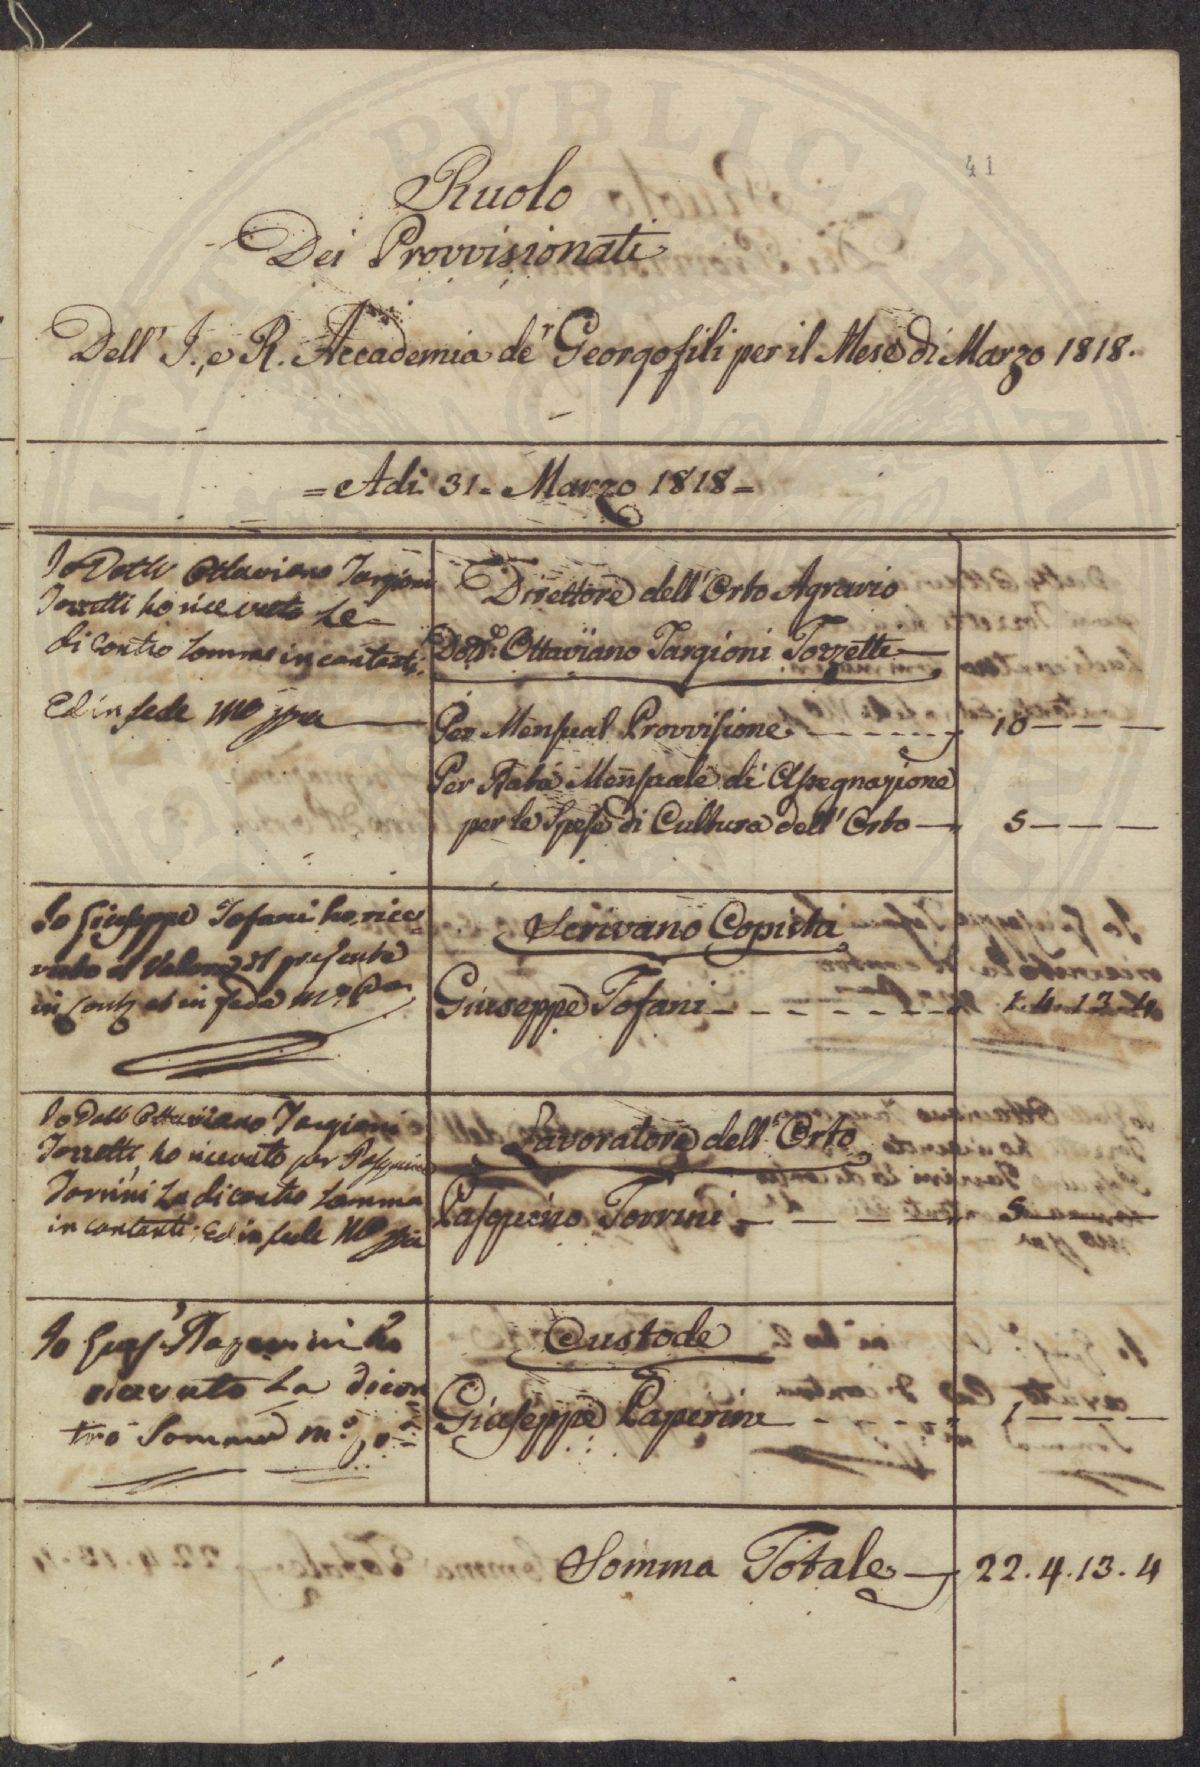 41
Ruolo
Dei Provvisionati
Dell' I. e R. Accademia de' Georgofili per il Mese di Marzo 1818.
= Adi 31. Marzo 1818 =
Io Dott Ottaviano Targioni
Tozzetti ho ricevuto le
di contro somme in contanti.
Ed in fede Mo ppa
Direttore dell' Orto Agrario
Dott. Ottaviano Targioni Tozzetti
Per Mensual Provvisione 10 - - -
Per Rata Mensuale di Assegnazione
per le Spese di Cultura dell' Orto 5 - - -
Io Giuseppe Tofani ho rice
vuto il valore del presente
in et in fede
Scrivano Copista
Giuseppe Tofani 1. 4. 13. 4
Io Dott Ottaviano Targioni
Tozzetti ho ricevuto per Pasquino
Torrini La di contro Somma
in contanti, Ed in fede Mo ppa
Lavoratore dell' Orto
Pasquino Torrini 5
Io Gius. Paperini ho
ricevuto La dicon
tro Somma m.o
Custode
Giuseppe Paperini 1
Somma Totale 22. 4. 13. 4